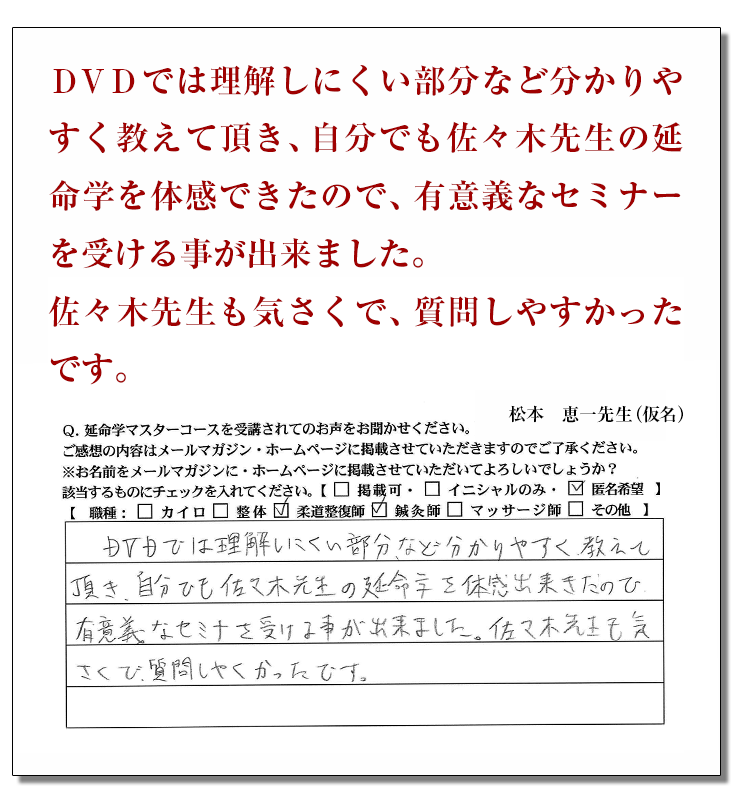 DVDでは理解しにくい部分など分かりや
すく教えて頂き、自分でも佐々木先生の延
命学を体感できたので、有意義なセミナー
を受ける事が出来ました。
佐々木先生も気さくで、質問しやすかった
です。
松本 恵一先生(仮名)
Q. 延命学マスターコースを受講されてのお声をお聞かせください。
ご感想の内容はメールマガジン・ホームページに掲載させていただきますのでご了承ください。
※お名前をメールマガジンに・ホームページに掲載させていただいてよろしいでしょうか?
該当するものにチェックを入れてください。【 □ 掲載可・ □ イニシャルのみ・ ☑ 匿名希望 】
【 職種: □ カイロ □ 整体 ☑ 柔道整復師 ☑ 鍼灸師 □ マッサージ師 □ その他 】
DVDでは理解しにくい部分など分かりやすく、教えて
頂き、自分でも佐々木先生の延命学を体感出来きたので、
有意義なセミナを受ける事が出来ました。佐々木先生も気
さくで、質問しやくかったです。